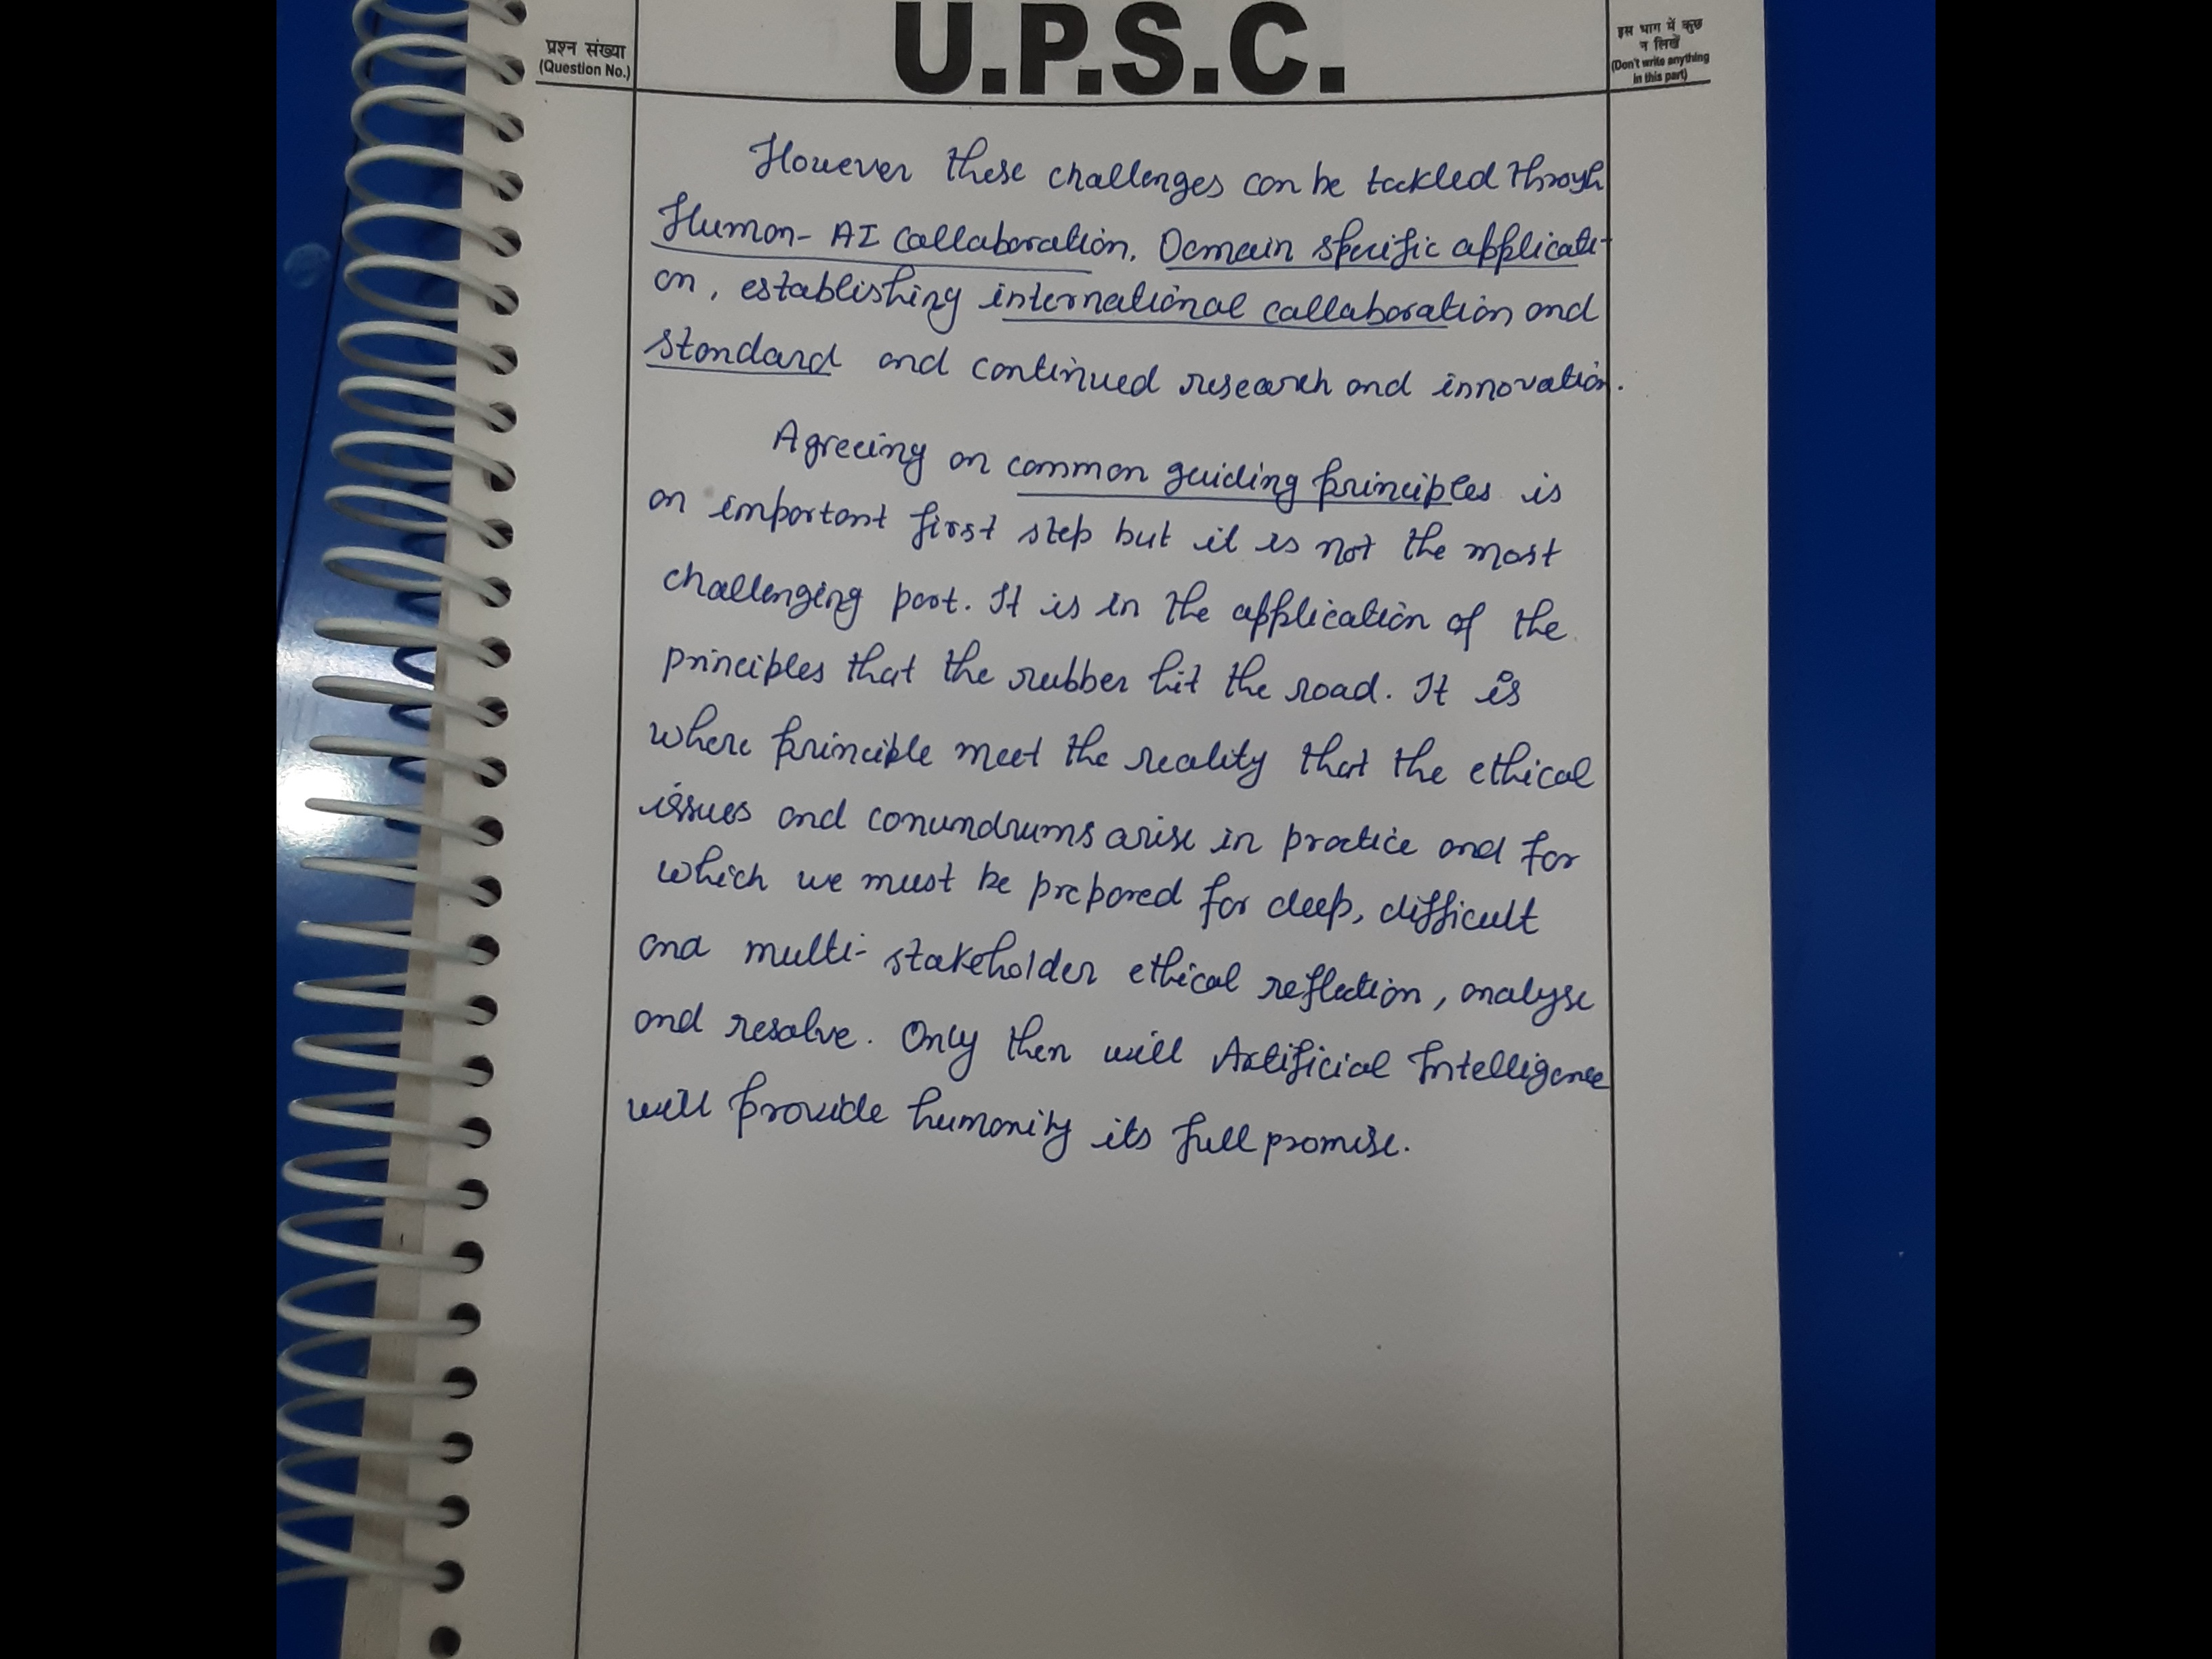 U.P.S.C.
प्रश्न संख्या
(Question No.)
इस भाग में कुछ
न लिखें
(Don't write anything
in this part)
However these challenges can be tackled through
Human-AI collaboration, Domain specific applicati-
on, establishing international collaboration and
standard and continued research and innovation.
Agreeing on common guiding principles is
an important first step but it is not the most
challenging part. It is in the application of the
principles that the rubber hit the road. It is
where principle meet the reality that the ethical
issues and conundrums arise in practice and for
which we must be prepared for deep, difficult
and multi-stakeholder ethical reflection, analyse
and resolve. Only then will Artificial Intelligence
will provide humanity its full promise.